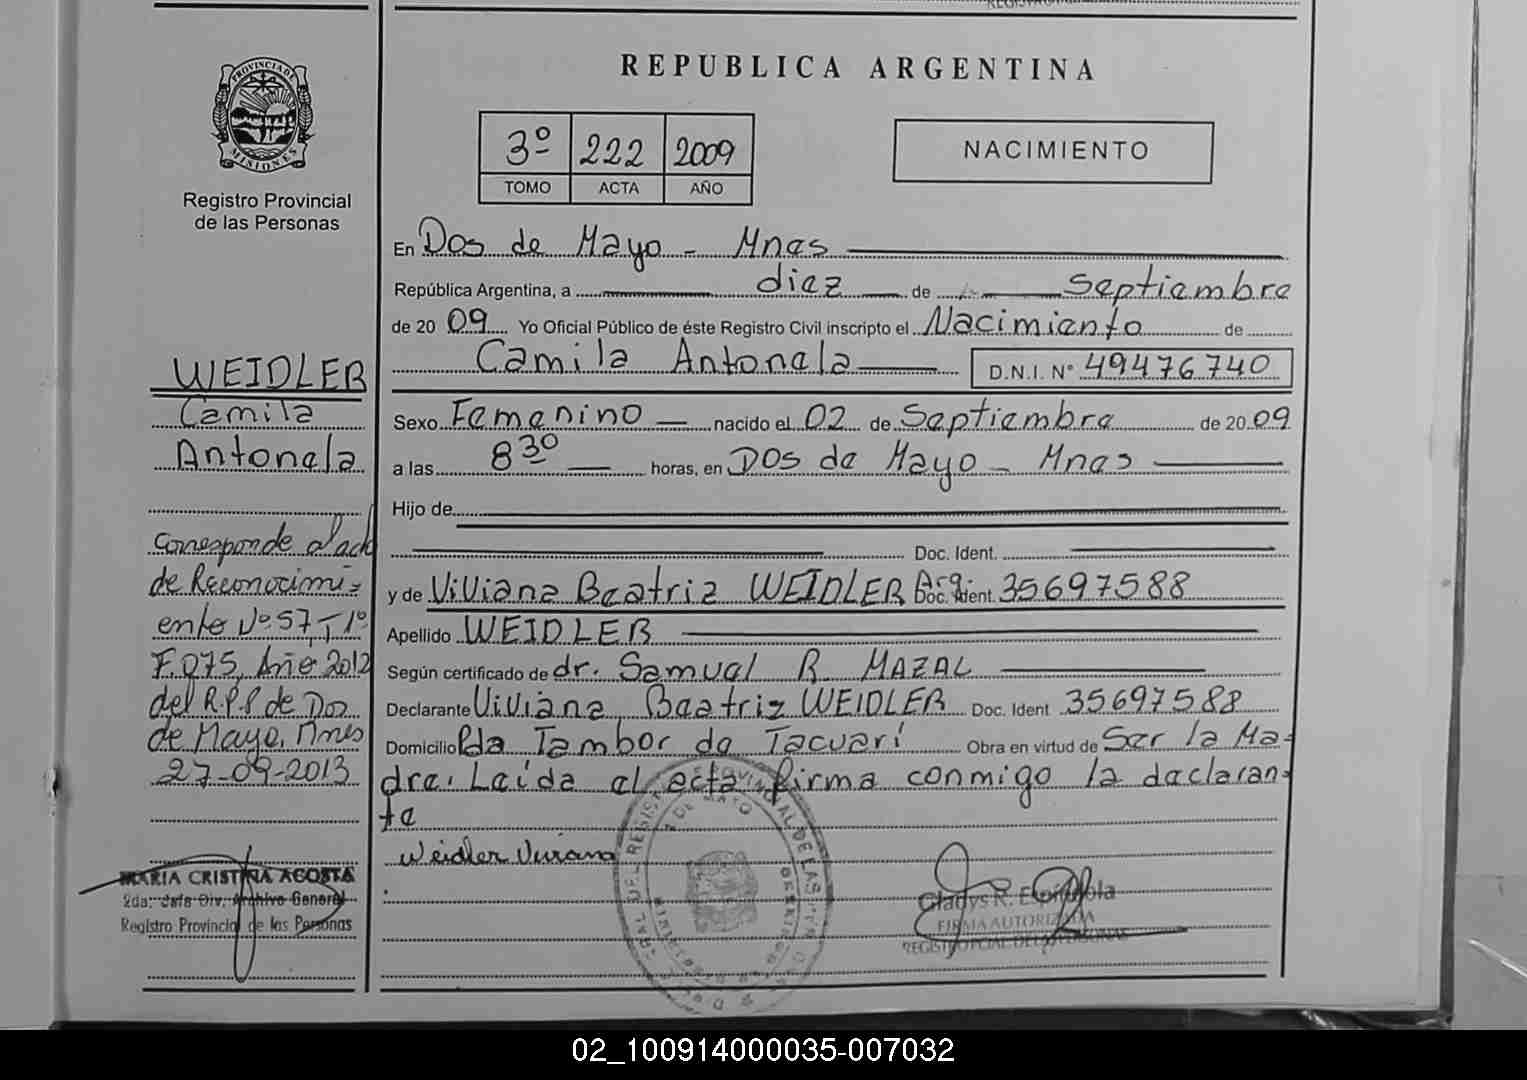 REPUBLICA ARGENTINA
PROVINCIA DE
MISIONES
Registro Provincial
de las Personas
3º 222 2009
TOMO ACTA AÑO
NACIMIENTO
En Dos de Mayo - Mnes
República Argentina, a diez de Septiembre
de 2009 Yo Oficial Público de éste Registro Civil inscripto el Nacimiento de
Camila Antonela D.N.I. Nº 49476740
Sexo Femenino nacido el 02 de Septiembre de 2009
a las 8 30 horas, en Dos de Mayo - Mnes
Hijo de
Doc. Ident.
y de Viviana Beatriz WEIDLER Arg. Doc. Ident. 35697588
Apellido WEIDLER
Según certificado de dr. Samuel R. MAZAL
Declarante Viviana Beatriz WEIDLER Doc. Ident 35697588
Domicilio Pda Tambor de Tacuarí Obra en virtud de Ser la Ma-
dre. Leída el acta firma conmigo la declaran-
te
Weidler Viviana
WEIDLER
Camila
Antonela
Corresponde al acta
de Reconocimi-
ento Nº 57, T 1º
F. 075, Año 2012
del R.P.P de Dos
de Mayo, Mnes
27-09-2013
MARIA CRISTINA ACOSTA
2da. Jefe Div. Archivo General
Registro Provincial de las Personas
2 DE MAYO
MISIONES
Gladys R. Espíndola
FIRMA AUTORIZADA
REGISTRO PCIAL. DE LAS PERSONAS
02_100914000035-007032